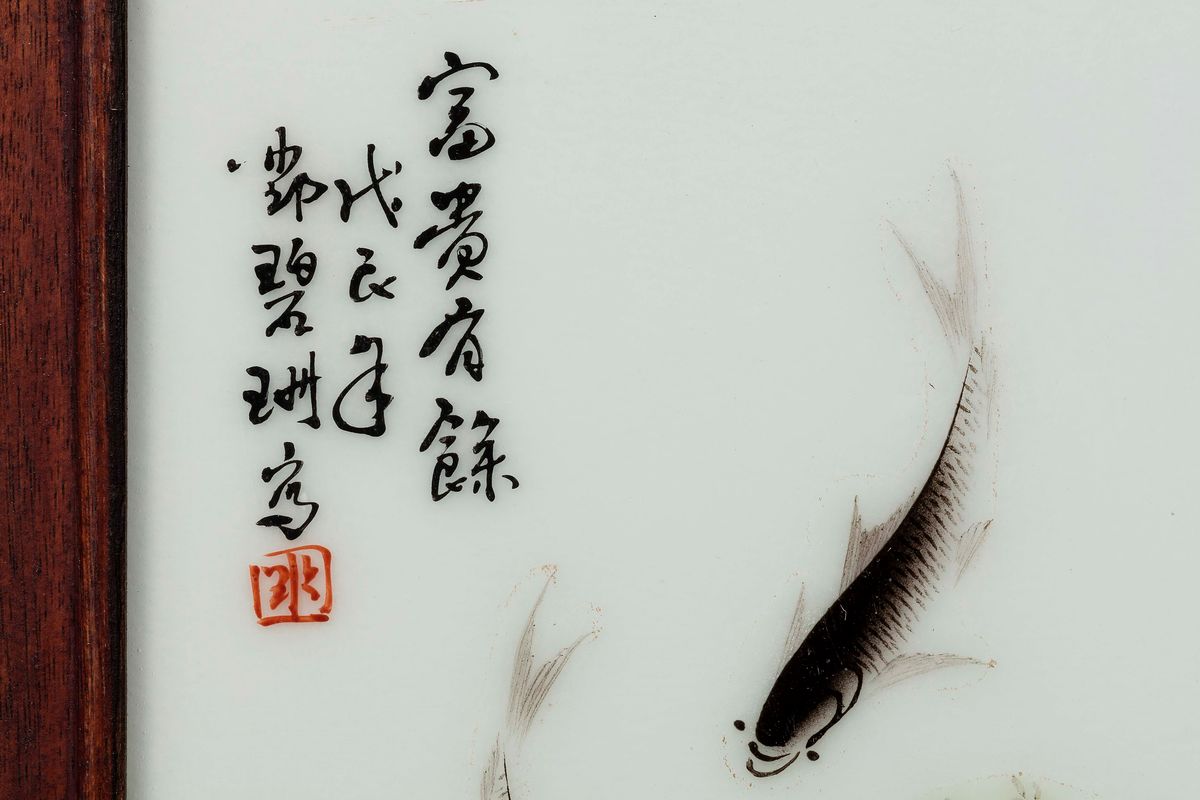 富貴有餘
戊辰年
鄧碧珊寫